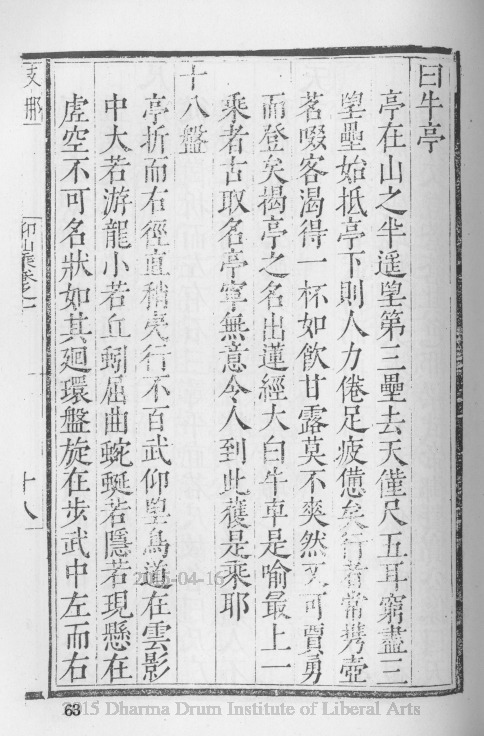 白牛亭
亭在山之半遥望第三壘去天僅尺五耳窮盡三
望壘始抵亭下則人力倦足疲憊矣行者常携壺
茗啜客渴得一杯如飲甘露莫不爽然又可賈勇
而登矣揭亭之名出蓮經大白牛車是喻最上一
乘者古取名亭寧無意今人到此獲是乘耶
十八盤
亭折而右徑直稍夷行不百武仰望鳥道在雲影
中大若游龍小若丘蚓屈曲蜿蜒若隱若現懸在
虛空不可名狀如其廻環盤旋在步武中左而右
支那
卷之一
十八
2015-04-16
63
2015 Dharma Drum Institute of Liberal Arts